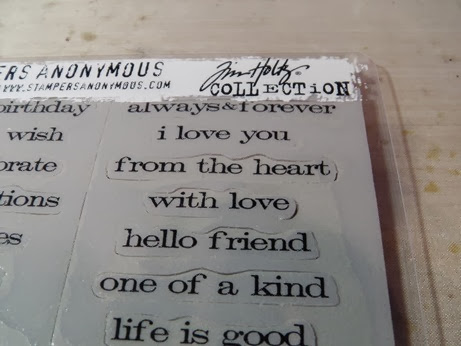 ERS ANONYMOUS
WWW.STAMPERSANONYMOUS.COM
Tim Holtz
COLLECTiON
birthday
wish
always&forever
i love you
from the heart
with love
hello friend
one of a kind
life is good